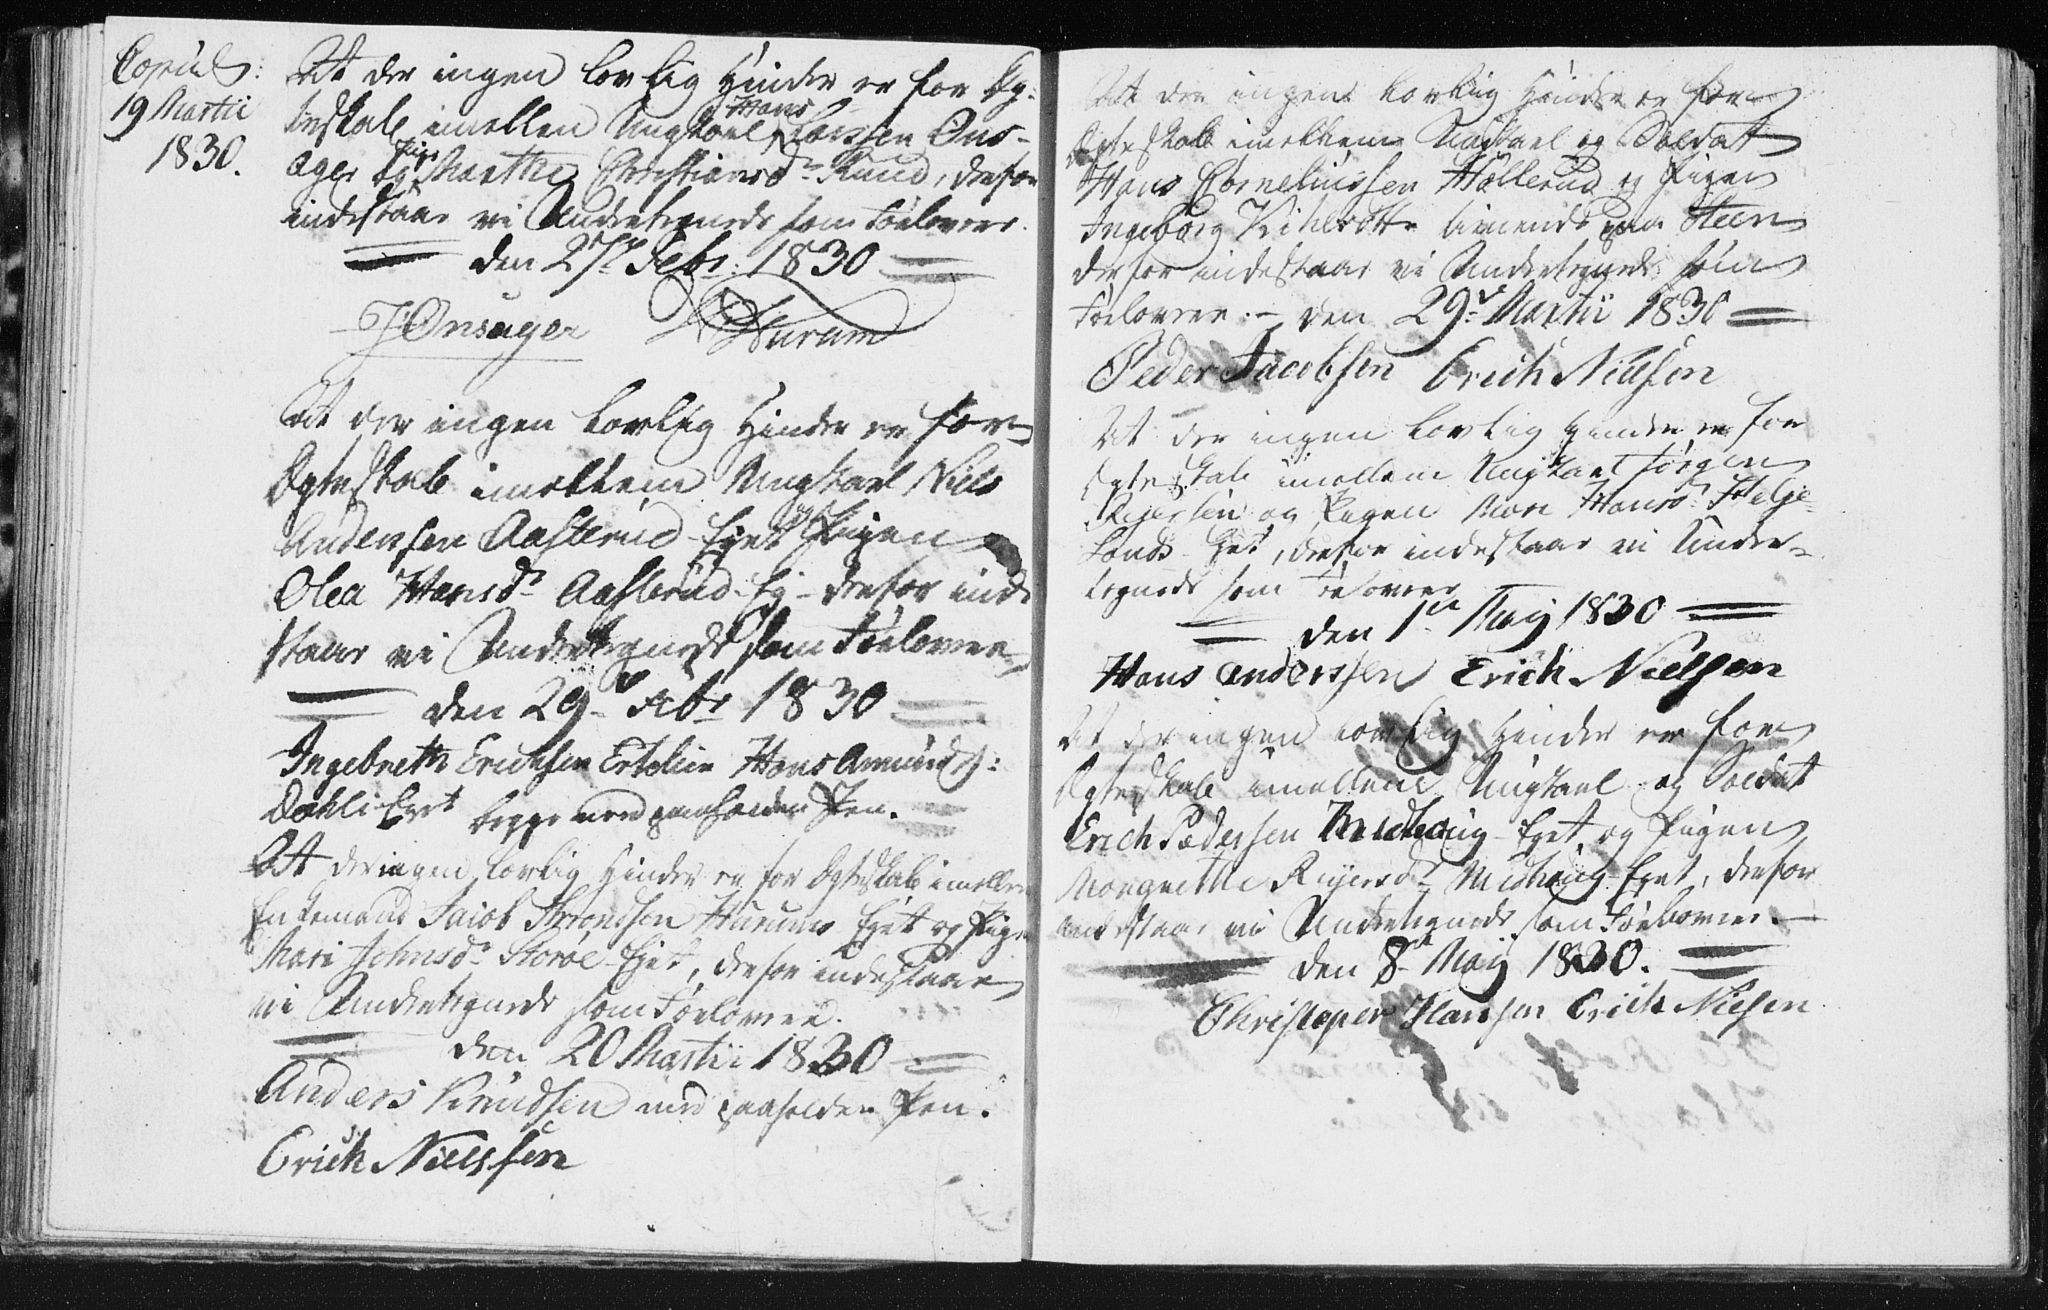 Copul:
19 Martii
1830.
At der ingen lovlig Hinder er for Eg-
teskab imellem Ungkarl Hans Larssen Ons-
ager og Pige Marthe Christiansdr Ruud, derfor
indestaar vi Undertegnede som Forlovere.
den 27de Febr: 1830
J Onsager Hurum
At der ingen lovlig Hinder er for
Egteskab imellem Ungkarl Niels
Anderssen Aasterud Eyet og Pigen
Olea Hansdr Aasterud-Ey- derfor inde
staar vi Undertegnede som Forlovere
den 29de Febr 1830
Ingebreth Erichsen Hans Amunds:
Dahli-Eyet begge med paaholden Pen.
At der ingen lovlig Hinder er for Egteskab imellem
Enkemand Jacob Throndsen Hurums Eyet og Pigen
Mari Johnsdr Storøe-Eyet, derfor indestaar
vi Undertegnede som Forlovere.
den 20 Martii 1830
Anders Knudsen med paaholden Pen.
Erich Nielssen
At der ingen lovlig Hinder er for
Egteskab imellem Ungkarl og Soldat
Hans Corneliussen Hollerud og Pigen
Ingeborg tienende paa Steen
derfor indestaar vi Undertegnede som
Forlovere.- den 29de Martii 1830
Peder Jacobsen Erich Nielsen
At der ingen lovlig Hinder er for
Egteskab imellem Ungkarl Jørgen
og Pigen Mari Hansdr Helge-
lands Eyet, derfor indestaar vi Under-
tegnede som Forlovere
den 1te May 1830
Hans anderssen Erich Nielsen
At der ingen lovlig Hinder er for
Egteskab imellem Ungkarl og Soldat
Erich Pedersen Eyet og Pigen
Margrethe Reyersdr Midhaug-Eyet, derfor
indestaar vi Undertegnede som Forlovere.-
den 8de May 1830.
Christopher Hansen Erich Nielsen